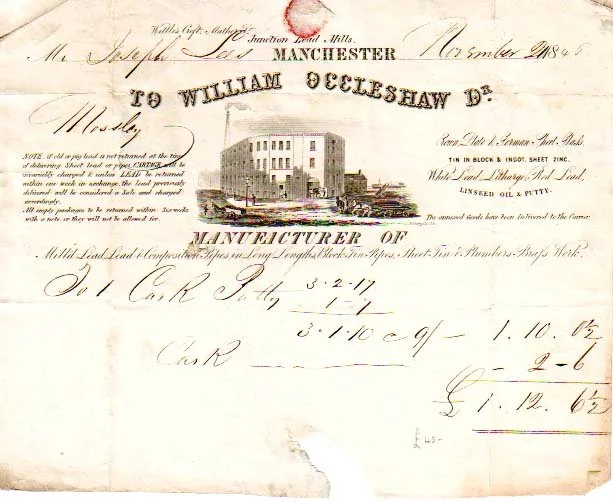 Junction Lead Mills,
Mr Joseph Lees MANCHESTER November 184
TO WILLIAM OCCLESHAW Dr.
Mossley
NOTE, If old or pig lead is not returned at the time
of delivering Sheet lead or pipes, CARTAGE will be
invariably charged & unless LEAD be returned
within one week in exchange, the lead previously
delivered will be considered a Sale and charged
accordingly.
All empty packages to be returned within Six weeks
with a note or they will not be allowed for.
Crown, Plate & German Sheet Glass,
TIN IN BLOCK & INGOT, SHEET ZINC,
White Lead, Litharge, Red Lead,
LINSEED OIL & PUTTY.
The annexed Goods have been delivered to the Carrier.
MANUFACTURER OF
Mill'd Lead, Lead & Composition Pipes in Long Lengths, Block Tin Pipes, Sheet Tin & Plumbers Brass Work.
To 1 Cask Putty 3 . 2 . 17
1 . 7
3 . 1 . 10 @ 9/- 1 . 10 . 0½
Cask - 2 - 6
£ 1 . 12 . 6½
£45-